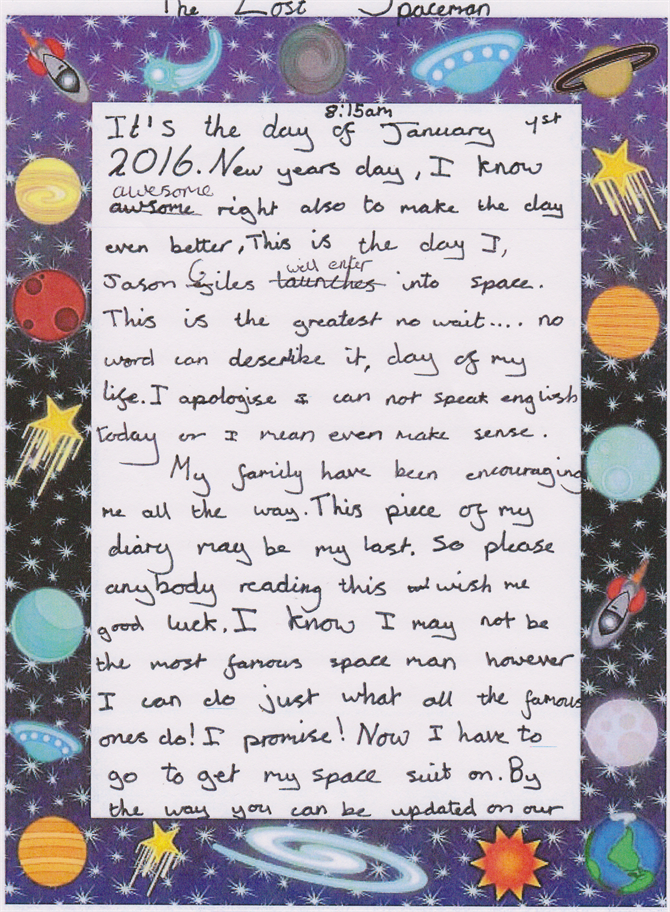 The Lost Spaceman
8:15am
It's the day of January 1st
2016. New years day, I know
awesome
awsome right also to make the day
even better, This is the day I,
will enter
Jason Giles launches into space.
This is the greatest no wait.... no
word can describe it, day of my
life. I apologise I can not speak english
today or I mean even make sense.
My family have been encouraging
me all the way. This piece of my
diary may be my last. So please
anybody reading this wish me
good luck. I know I may not be
the most famous space man however
I can do just what all the famous
ones do! I promise! Now I have to
go to get my space suit on. By
the way you can be updated on our